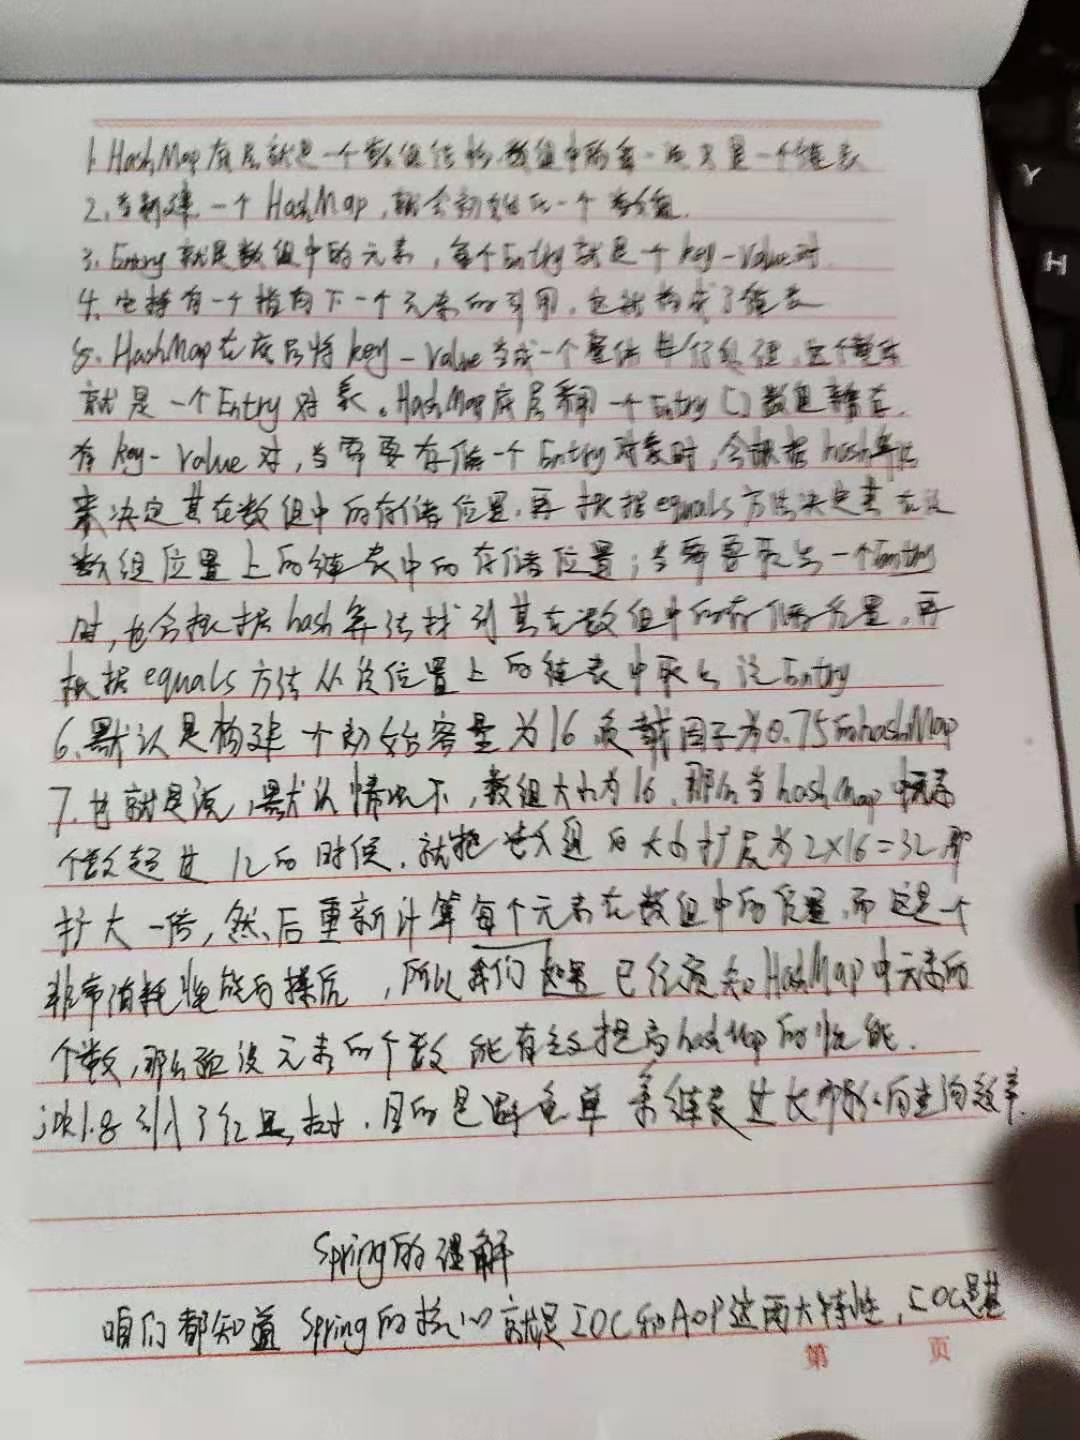 1. HashMap底层就是一个数组结构,数组中的每一项又是一个链表
2. 当新建一个HashMap,就会初始化一个数组.
3. Entry就是数组中的元素,每个Entry就是一个key-value对
4. 它持有一个指向下一个元素的引用,这就构成了链表
5. HashMap在底层将key-value当成一个整体进行处理,这个整体
就是一个Entry对象。HashMap底层采用一个Entry[]数组来保存
有key-value对,当需要存储一个Entry对象时,会根据hash算法
来决定其在数组中的存储位置,再根据equals方法决定其在该
数组位置上的链表中的存储位置;当需要取出一个Entry
时,也会根据hash算法找到其在数组中的存储位置,再
根据equals方法从该位置上的链表中取出该Entry
6. 默认是构建一个初始容量为16负载因子为0.75的hashMap
7. 也就是说,默认情况下,数组大小为16,那么当hashMap中元素
个数超过12的时候,就把数组的大小扩展为2×16=32即
扩大一倍,然后重新计算每个元素在数组中的位置,而这是一个
非常消耗性能的操作,所以我们如果已经预知HashMap中元素的
个数,那么预设元素的个数能有效提高hashMap的性能.
jdk1.8引入了红黑树,目的是避免单条链表过长而影响查询效率
Spring的理解
咱们都知道Spring的核心就是IOC和AOP这两大特性,IOC是基
第 页
Y
H